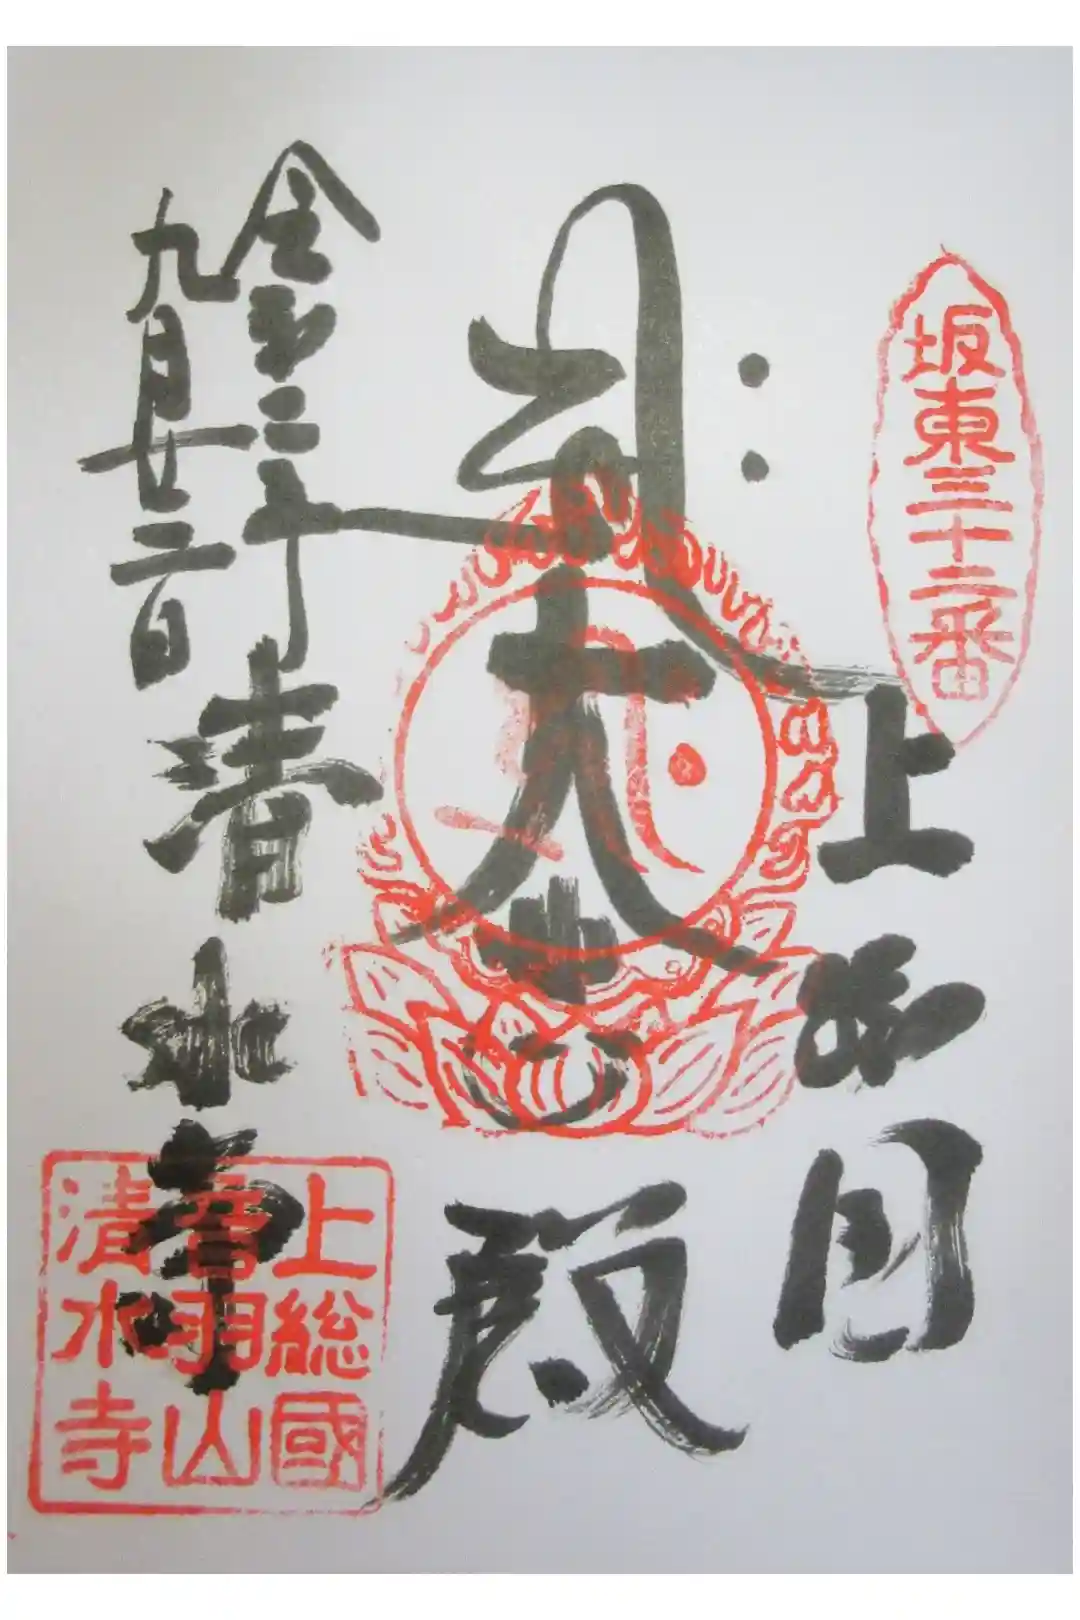 坂東三十二番
上総国
サ 大悲殿
令和二年
九月廿二日
清水寺
上總國
音羽山
清水寺